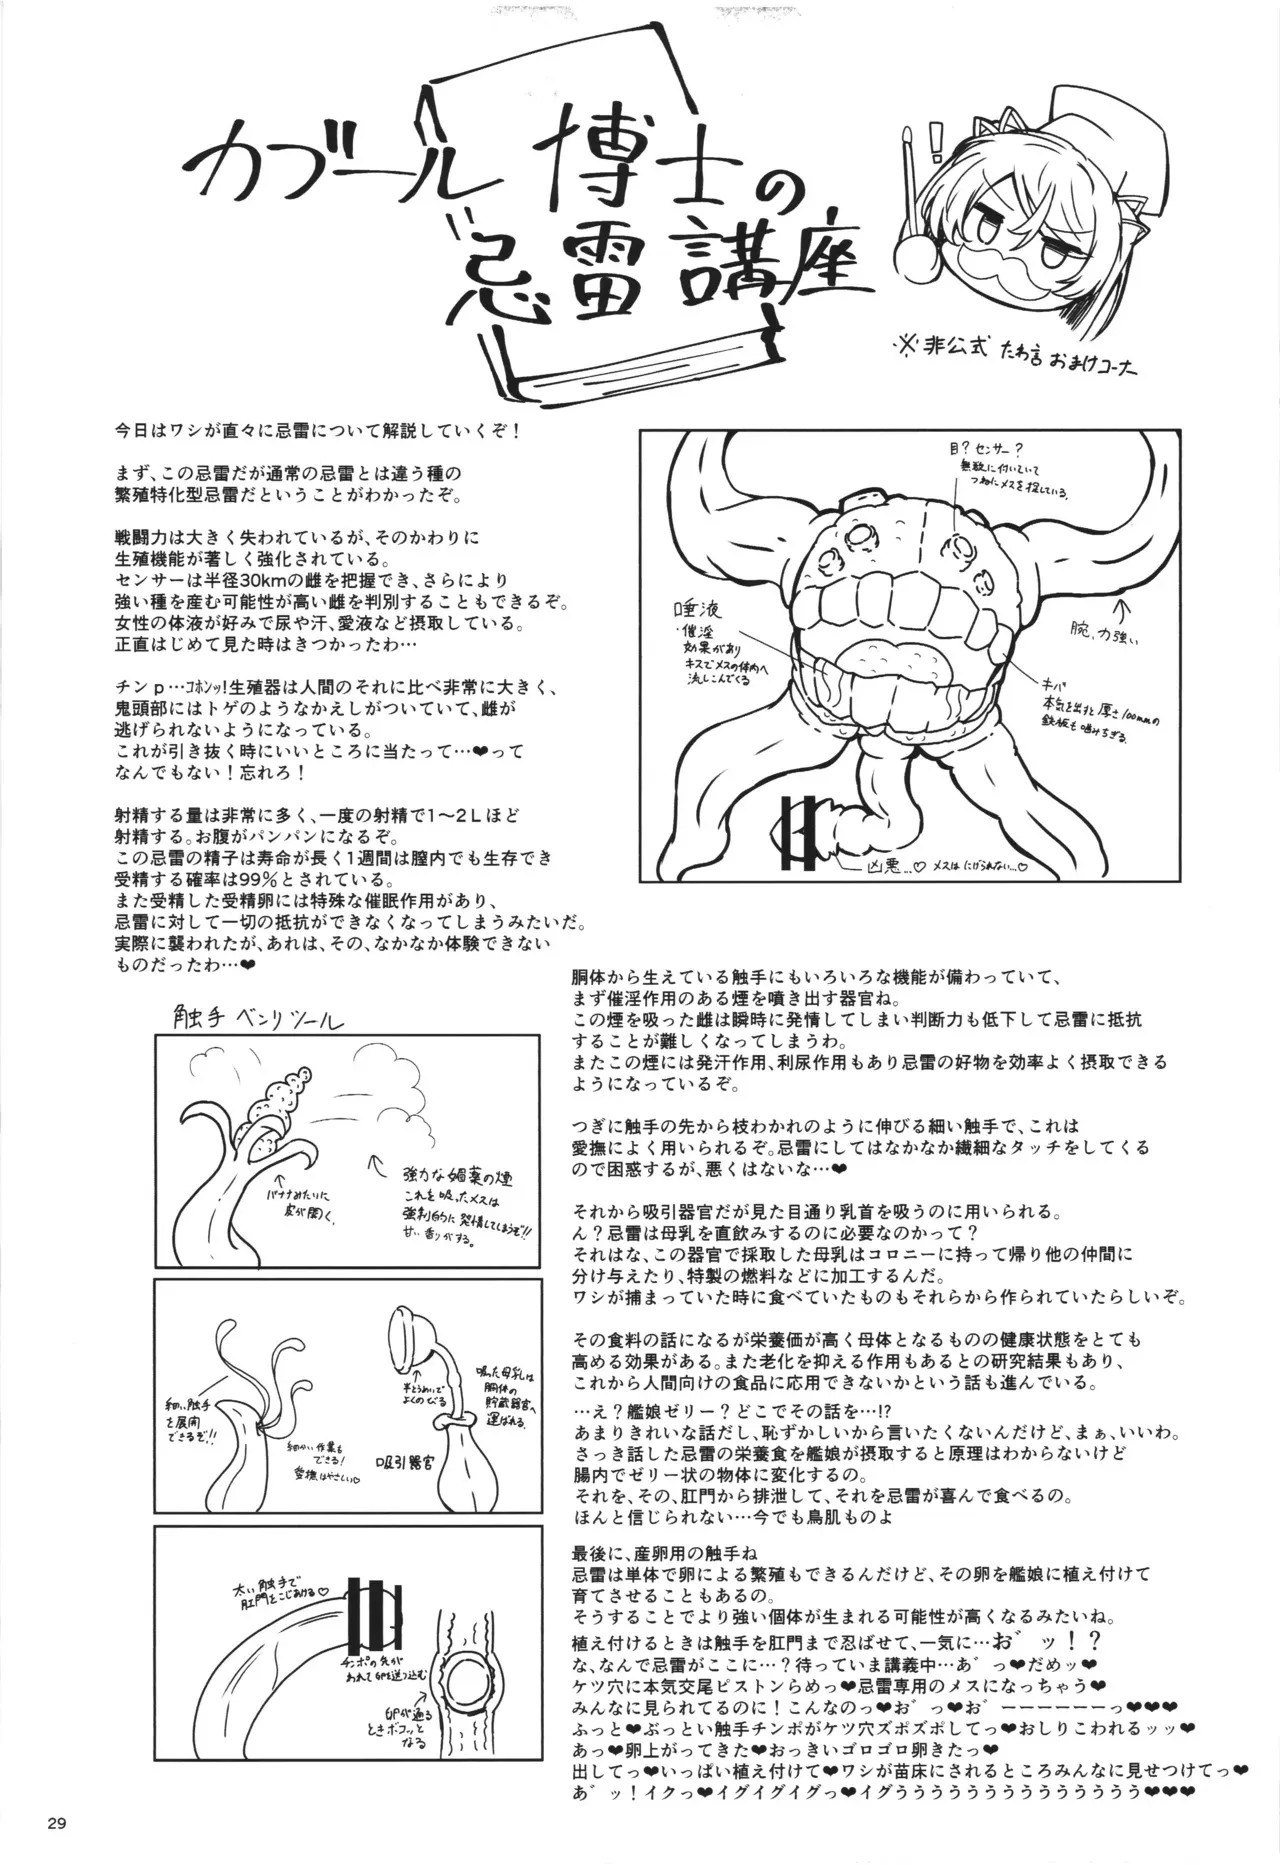 カブール博士の
忌雷講座
!
※非公式 たわ言 おまけコーナー
今日はワシが直々に忌雷について解説していくぞ！
まず、この忌雷だが通常の忌雷とは違う種の
繁殖特化型忌雷だということがわかったぞ。
戦闘力は大きく失われているが、そのかわりに
生殖機能が著しく強化されている。
センサーは半径30kmの雌を把握でき、さらにより
強い種を産む可能性が高い雌を判別することもできるぞ。
女性の体液が好みで尿や汗、愛液など摂取している。
正直はじめて見た時はきつかったわ…
チンｐ…ｺﾎﾝｯ！生殖器は人間のそれに比べ非常に大きく、
鬼頭部にはトゲのようなかえしがついていて、雌が
逃げられないようになっている。
これが引き抜く時にいいところに当たって…❤って
なんでもない！忘れろ！
射精する量は非常に多く、一度の射精で1～2Lほど
射精する。お腹がパンパンになるぞ。
この忌雷の精子は寿命が長く1週間は膣内でも生存でき
受精する確率は99%とされている。
また受精した受精卵には特殊な催眠作用があり、
忌雷に対して一切の抵抗ができなくなってしまうみたいだ。
実際に襲われたが、あれは、その、なかなか体験できない
ものだったわ…❤
目？センサー？
無数に付いていて
つねにメスを探している。
唾液
・催淫
効果があり
キスでメスの体内へ
流しこんでくる
腕、力強い
キバ
本気を出すと厚さ100mmの
鉄板も噛みちぎる。
凶悪…♡ メスはにげられない…♡
触手 ベンリツール
バナナみたいに
皮が開く。
強力な媚薬の煙
これを吸ったメスは
強制的に発情してしまうぞ!!
甘い香りがする。
細い触手
を展開
できるぞ!!
細かい作業も
できる！
愛撫はやさしい♡
半とうめいで
よくのびる
吸った母乳は
胴体の
貯蔵器官へ
運ばれる。
吸引器官
太い触手で
肛門をこじあける♡
チンポの先が
われて卵を送り込む
卵が通る
ときボコッと
なる
胴体から生えている触手にもいろいろな機能が備わっていて、
まず催淫作用のある煙を噴き出す器官ね。
この煙を吸った雌は瞬時に発情してしまい判断力も低下して忌雷に抵抗
することが難しくなってしまうわ。
またこの煙には発汗作用、利尿作用もあり忌雷の好物を効率よく摂取できる
ようになっているぞ。
つぎに触手の先から枝わかれのように伸びる細い触手で、これは
愛撫によく用いられるぞ。忌雷にしてはなかなか繊細なタッチをしてくる
ので困惑するが、悪くはないな…❤
それから吸引器官だが見た目通り乳首を吸うのに用いられる。
ん？忌雷は母乳を直飲みするのに必要なのかって？
それはな、この器官で採取した母乳はコロニーに持って帰り他の仲間に
分け与えたり、特製の燃料などに加工するんだ。
ワシが捕まっていた時に食べていたものもそれらから作られていたらしいぞ。
その食料の話になるが栄養価が高く母体となるものの健康状態をとても
高める効果がある。また老化を抑える作用もあるとの研究結果もあり、
これから人間向けの食品に応用できないかという話も進んでいる。
…え？艦娘ゼリー？どこでその話を…!?
あまりきれいな話だし、恥ずかしいから言いたくないんだけど、まぁ、いいわ。
さっき話した忌雷の栄養食を艦娘が摂取すると原理はわからないけど
腸内でゼリー状の物体に変化するの。
それを、その、肛門から排泄して、それを忌雷が喜んで食べるの。
ほんと信じられない…今でも鳥肌ものよ
最後に、産卵用の触手ね
忌雷は単体で卵による繁殖もできるんだけど、その卵を艦娘に植え付けて
育てさせることもあるの。
そうすることでより強い個体が生まれる可能性が高くなるみたいね。
植え付けるときは触手を肛門まで忍ばせて、一気に…お゛ッ！？
な、なんで忌雷がここに…？待っていま講義中…あ゛っ❤だめッ❤
ケツ穴に本気交尾ピストンらめっ❤忌雷専用のメスになっちゃう❤
みんなに見られてるのに！こんなのっ❤お゛っ❤お゛ーーーーーーっ❤❤❤
ふっと❤ぶっとい触手チンポがケツ穴ズポズポしてっ❤おしりこわれるッッ❤
あっ❤卵上がってきた❤おっきいゴロゴロ卵きたっ❤
出してっ❤いっぱい植え付けて❤ワシが苗床にされるところみんなに見せつけてっ❤
あ゛ッ！イクっ❤イグイグイグっ❤イグうううううううううううううううう❤❤❤
29